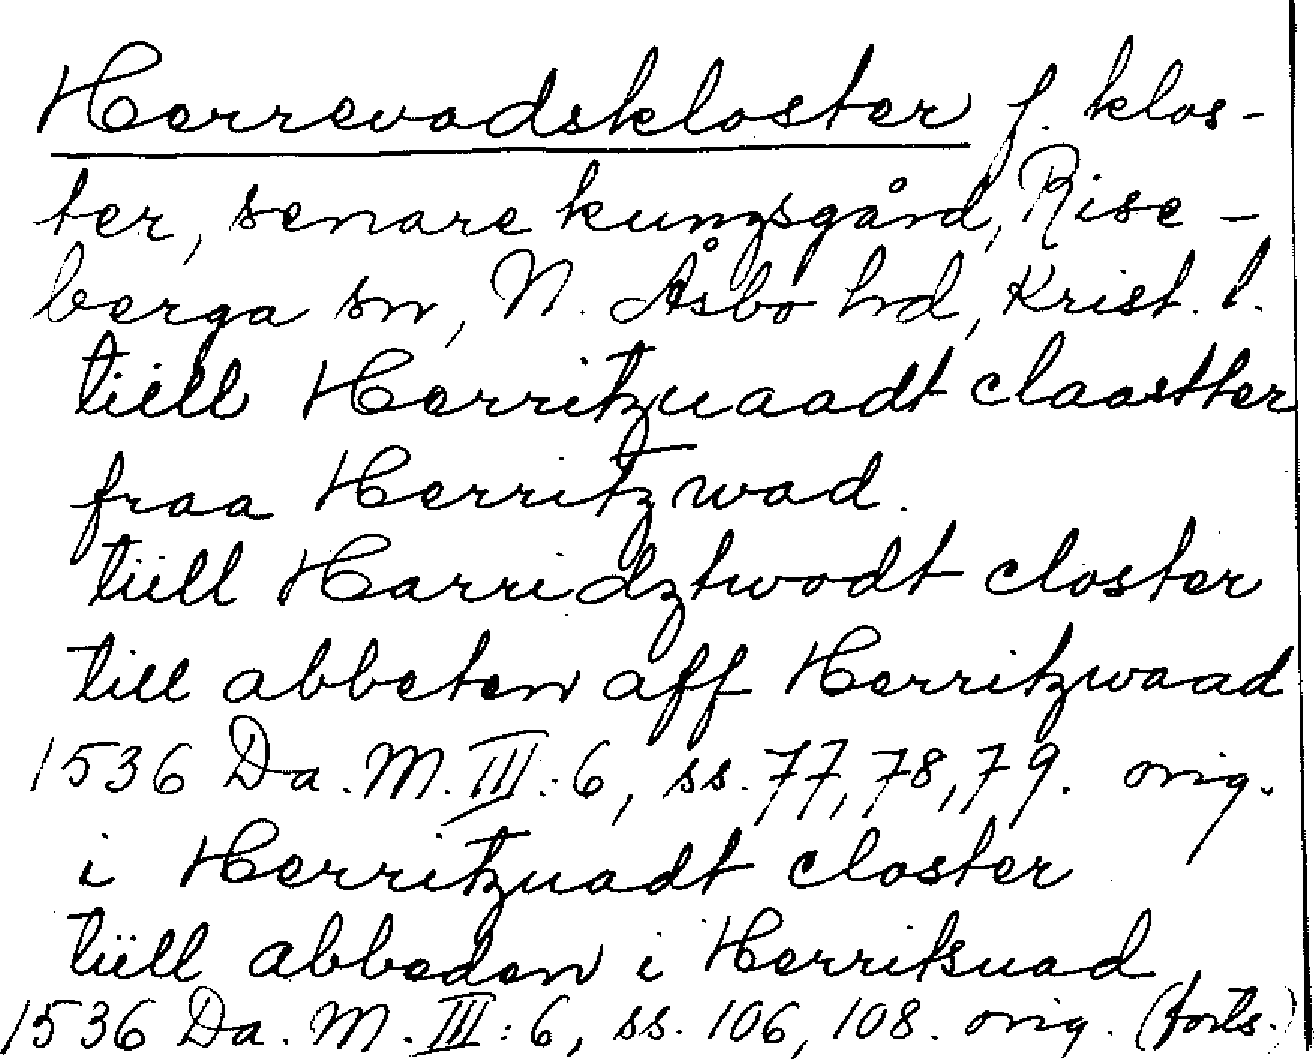 Herrevadskloster f. klos-
ter, senare kungsgård, Rise-
berga sn, N. Åsbo hd, Krist. l.
tiill Herritzuaadt claastter
fraa Herritzwad.
tiill Harridztwodt closter
till abbeten aff Herritzwaad
1536 Da. M. III: 6, ss. 77, 78, 79. orig.
i Herritzuadt closter
tiill abbeden i Herritsuad,
1536 Da. M. III: 6, ss. 106, 108. orig. (forts.)